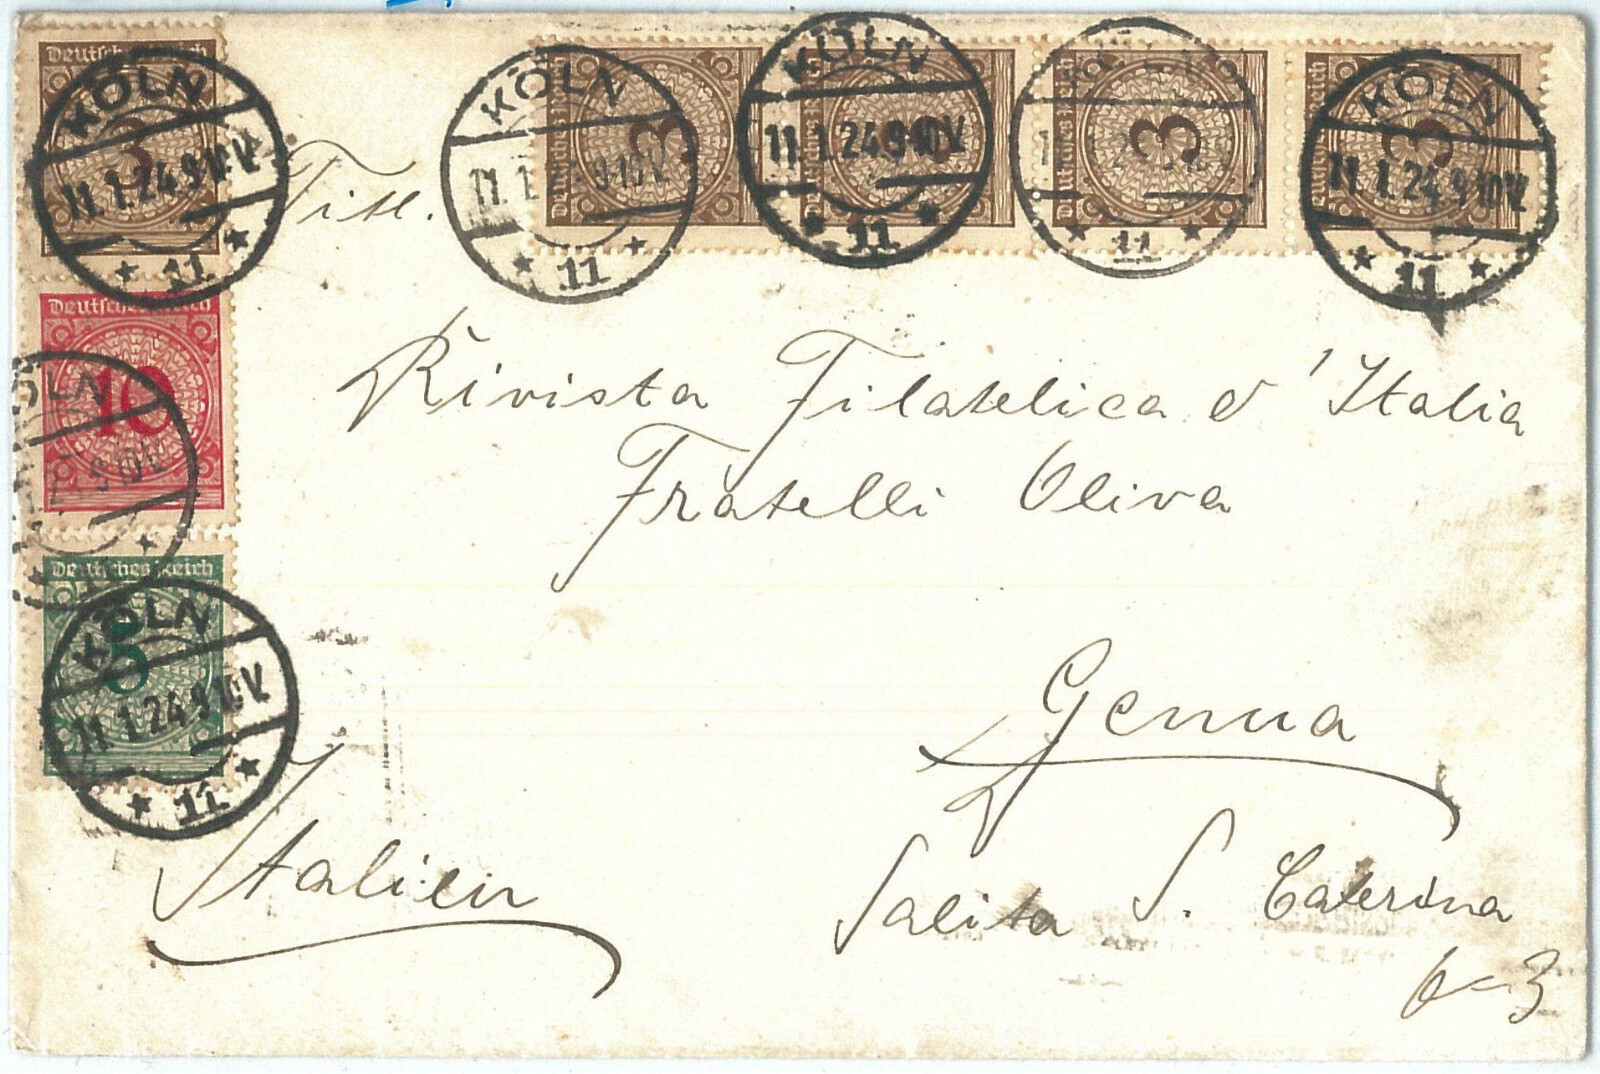 Deutsches Reich
3
KÖLN
11.1.24.9-10V.
★ 11 ★
KÖLN
11.1.24.9-10V.
★ 11 ★
Deutsches Reich
3
KÖLN
11.1.24.9-10V.
★ 11 ★
Deutsches Reich
3
KÖLN
★ 11 ★
Deutsches Reich
3
KÖLN
11.1.24.9-10V.
★ 11 ★
Deutsches Reich
3
Deutsches Reich
10
KÖLN
Deutsches Reich
5
KÖLN
11.1.24.9-10V.
★ 11 ★
Rivista Filatelica d'Italia
Fratelli Oliva
Genua
Salita S. Caterina
6-3
Italien